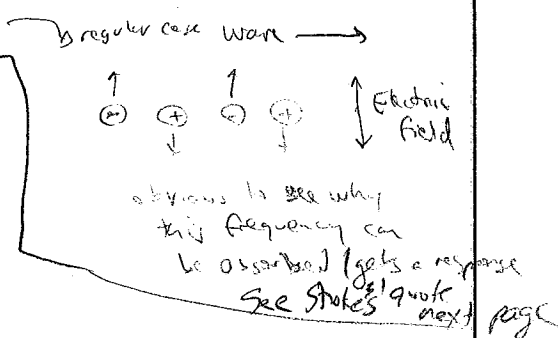 regular case wave
- + - +
Electric
field
obvious to see why
this frequency can
be absorbed / gets a response
See Stokes' quote
next page